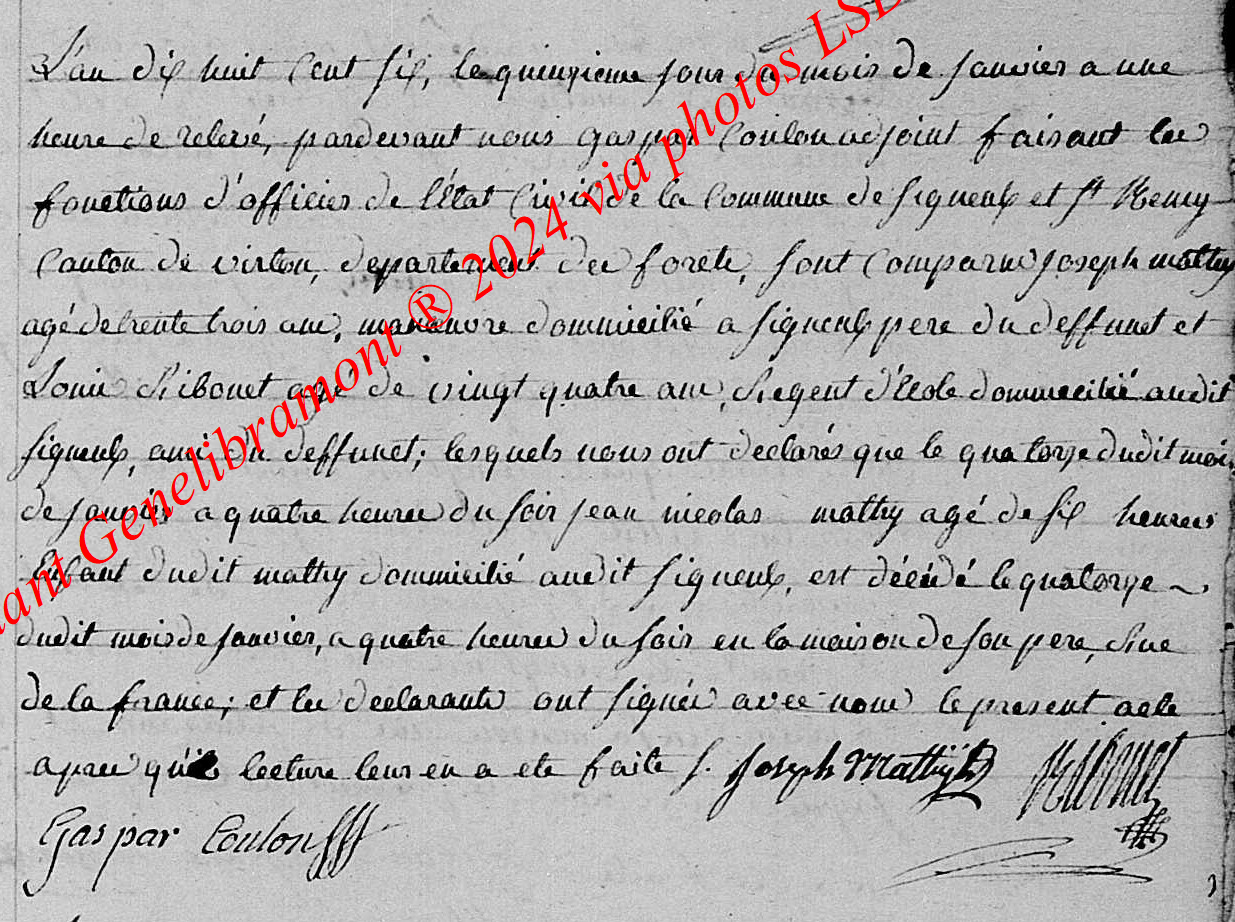 L'an dix huit Cent Six, le quinzieme jour du mois de Janvier a une
heure de relevé, pardevant nous gaspar Coulon adjoint faisant les
fonctions d'officier de l'État Civil de la Commune de Signeulx et St Remy
Canton de virton, departement des forets, sont Comparus Joseph mathy
agé de trente trois ans, manœuvre dommicilié a Signeulx pere du deffunct et
Louis Ribonet agé de vingt quatre ans, Regent d'École dommecilié audit
Signeulx, ami du deffunct; lesquels nous ont declarés que le quatorze dudit mois
de Janvier a quatre heures du soir jean nicolas mathy agé de six heures
Enfant dudit mathy dommicilié audit Signeulx, est décédé le quatorze
dudit mois de Janvier, a quatre heures du soir en la maison de son pere, Rue
de la france; et les declarants ont signés avec nous le present acte
apres qu'il lecture leur en a ete faite /. Joseph Mathy Ribonet
Gaspar Coulon
ant Genelibramont ® 2024 via photos LSD